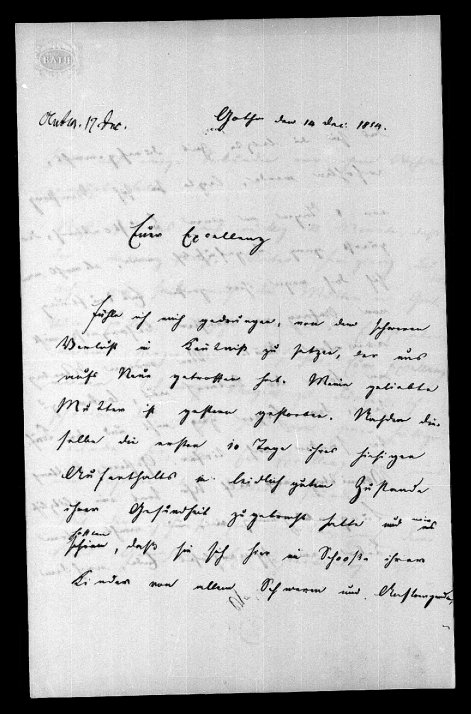 BATH
Antw. 17. Dec.
Gotha den 14 Dec. 1854.
Euer Excellenz
fühle ich mich gedrungen, von dem schweren
Verlust in Kentniß zu setzen, der uns
aufs Neue getroffen hat. Meine geliebte
Mutter ist gestern gestorben. Nachdem die-
selbe die ersten 10 Tage ihres hiesigen
Aufenthalts in leidlich gutem Zustande
ihrer Gesundheit zugebracht hatte und wir
hofften, daß sie sich hier im Schooße ihrer
Kinder von allen